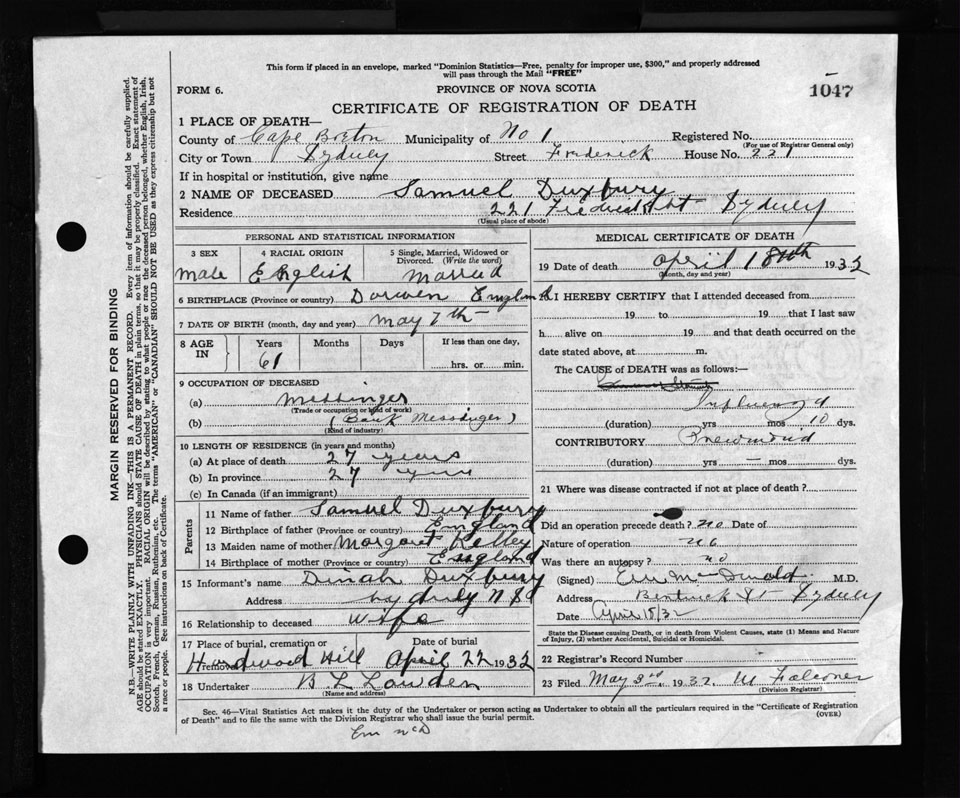 This form if placed in an envelope, marked "Dominion Statistics—Free, penalty for improper use, $300," and properly addressed
will pass through the Mail "FREE"
FORM 6.
PROVINCE OF NOVA SCOTIA
1047
CERTIFICATE OF REGISTRATION OF DEATH
1 PLACE OF DEATH—
County of Cape Breton Municipality of No 1 Registered No.
(For use of Registrar General only)
City or Town Sydney Street Frederick House No. 221
If in hospital or institution, give name
2 NAME OF DECEASED Samuel Duxbury
Residence 221 Frederick St Sydney
(Usual place of abode)
PERSONAL AND STATISTICAL INFORMATION
3 SEX 4 RACIAL ORIGIN 5 Single, Married, Widowed or
Divorced. (Write the word)
Male English Married
6 BIRTHPLACE (Province or country) Darwen England
7 DATE OF BIRTH (month, day and year) May 7th
8 AGE IN Years Months Days If less than one day,
61 hrs. or min.
9 OCCUPATION OF DECEASED
(a) Messinger
(Trade or occupation or kind of work)
(b) (Bank Messinger)
(Kind of industry)
10 LENGTH OF RESIDENCE (in years and months)
(a) At place of death 27 years
(b) In province 27 years
(c) In Canada (if an immigrant)
Parents
11 Name of father Samuel Duxbury
12 Birthplace of father (Province or country) England
13 Maiden name of mother Margaret Kelley
14 Birthplace of mother (Province or country) England
15 Informant's name Dinah Duxbury
Address Sydney N S
16 Relationship to deceased Wife
17 Place of burial, cremation or removal Date of burial
Hardwood Hill April 22 1932
18 Undertaker B L Lowden
(Name and address)
MEDICAL CERTIFICATE OF DEATH
19 Date of death April 18th 1932
(Month, day and year)
I HEREBY CERTIFY that I attended deceased from
19 to 19 that I last saw
h alive on 19 and that death occurred on the
date stated above, at m.
The CAUSE of DEATH was as follows:—
Influenza
(duration) yrs mos 10 dys.
CONTRIBUTORY Pneumonia
(duration) yrs — mos dys.
21 Where was disease contracted if not at place of death?
Did an operation precede death? no Date of
Nature of operation no
Was there an autopsy? no
(Signed) McDonald M.D.
Address Bentinck St Sydney
Date April 18/32
State the Disease causing Death, or in death from Violent Causes, state (1) Means and Nature
of Injury, (2) whether Accidental, Suicidal or Homicidal.
22 Registrar's Record Number
23 Filed May 3rd 1932 M Falconer
(Division Registrar)
Sec. 46—Vital Statistics Act makes it the duty of the Undertaker or person acting as Undertaker to obtain all the particulars required in the "Certificate of Registration
of Death" and to file the same with the Division Registrar who shall issue the burial permit.
(OVER)
MARGIN RESERVED FOR BINDING
N.B.—WRITE PLAINLY WITH UNFADING INK—THIS IS A PERMANENT RECORD. Every item of information should be carefully supplied.
AGE should be stated EXACTLY. PHYSICIANS should STATE CAUSE OF DEATH in plain terms, so that it may be properly classified. Exact statement of
OCCUPATION is very important. RACIAL ORIGIN will be described by stating to what people or race the deceased person belonged, whether English, Irish,
Scotch, French, German, Russian, Ruthenian, etc. The terms "AMERICAN" or "CANADIAN" SHOULD NOT BE USED as they express citizenship but not
a race or people. See instructions on back of Certificate.